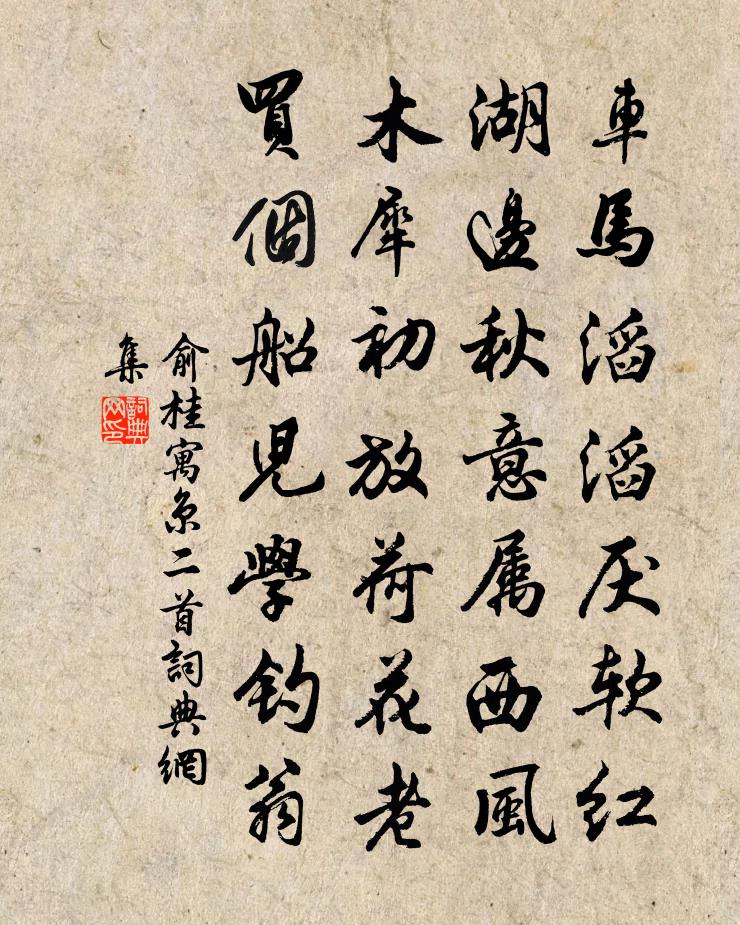 車馬滔滔厌软红
湖邊秋意属西風
木犀初放荷花老
買個船児學釣翁
俞桂寓京二首詞典網
集
詞典
网印